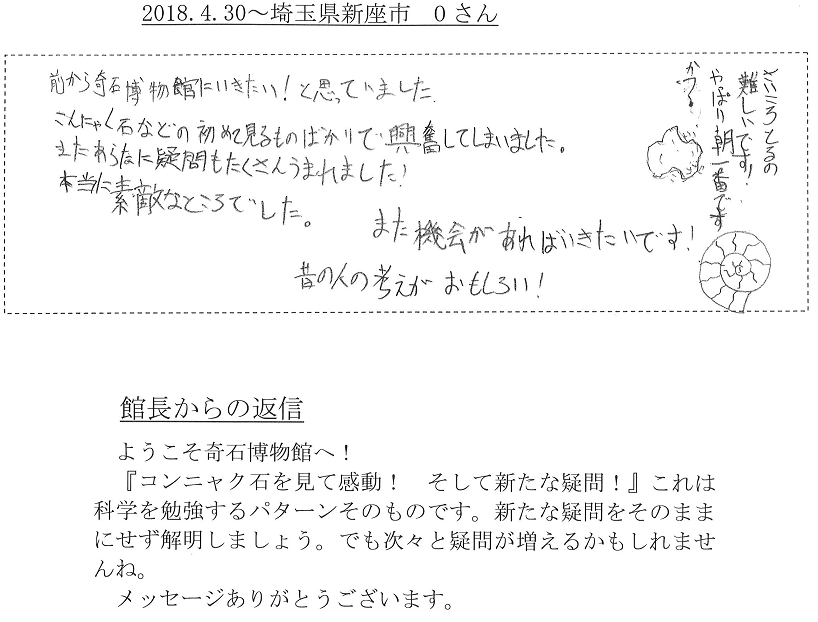 2018.4.30～埼玉県新座市　Oさん
前から奇石博物館にいきたい!と思っていました
こんにゃく石などの初めて見るものばかりで興奮してしまいました。
またあらたに疑問もたくさんうまれました!
本当に素敵なところでした。
また機会があればいきたいです!
昔の人の考えがおもしろい!
さいころとるの
難しいです!
やっぱり朝一番です
かつる
館長からの返信
ようこそ奇石博物館へ！
『コンニャク石を見て感動！　そして新たな疑問！』これは
科学を勉強するパターンそのものです。新たな疑問をそのまま
にせず解明しましょう。でも次々と疑問が増えるかもしれませ
んね。
メッセージありがとうございます。